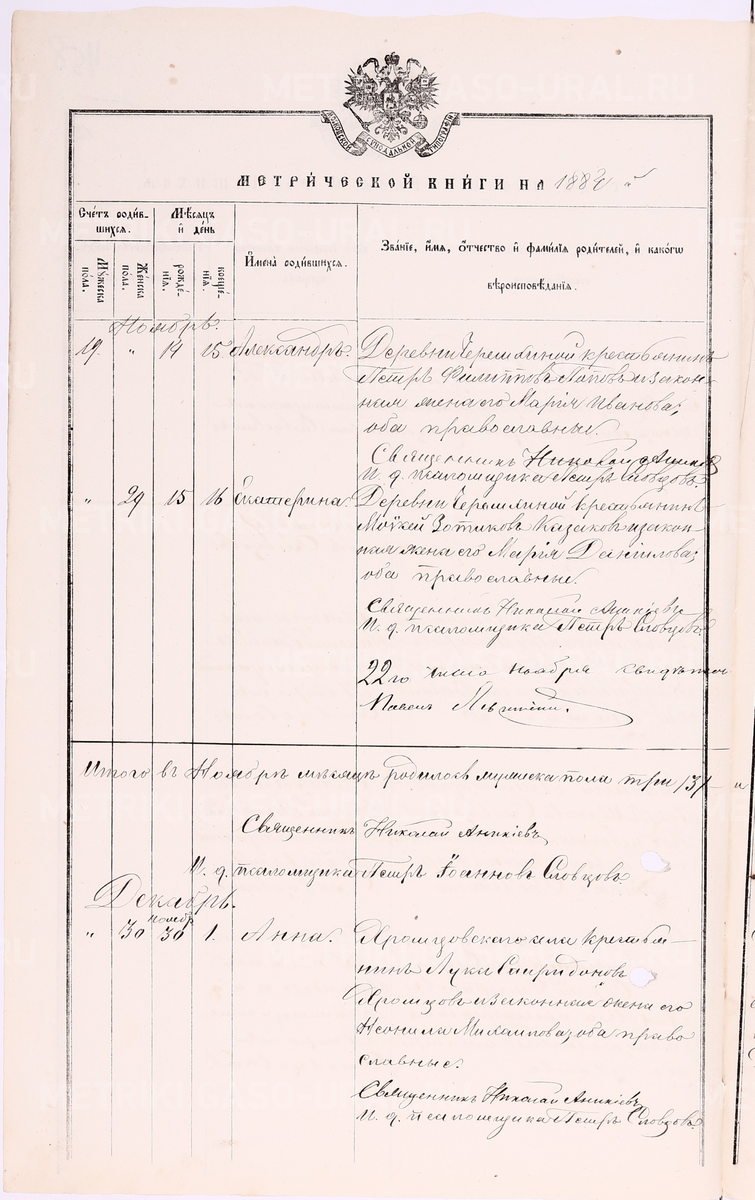 МОСКОВСКОЙ СѴНОДАЛЬНОЙ ТИПОГРАФІИ
МЕТРИ́ЧЕСКОЙ КНИ́ГИ НА 188 й
Сче́тъ роди́в-
шихся.
Мѣ́сяцъ
и҆ де́нь
И҆мена̀ роди́вшихся.
Зва́нїе, и҆́мя, ѻ҆́тчество и҆ фами́лїя роди́телей, и҆ како́гѡ
вѣроисповѣ́данїя.
Мꙋ́жеска по́ла.
Же́нска по́ла.
рожде́-
нїя.
креще́-
нїя.
Ноябрь.
19. " 14 15 Александръ. Деревни крестьянинъ
Петръ Филипповъ Поповъ и закон-
ная жена его Марія Иванова;
оба православные.
Священникъ Николай Аникіевъ
И. д. псаломщика Петръ Словцовъ.
" 29 15 16 Екатерина. Деревни крестьянинъ
Мокей Зотиковъ Казаковъ и закон-
ная жена его Марія Даніилова;
оба православные.
Священникъ Николай Аникіевъ
И. д. псаломщика Петръ Словцовъ.
22го числа ноября
Павелъ
Итого въ Ноябрѣ мѣсяцѣ родилось мужска пола три /3/
Священникъ Николай Аникіевъ
И. д. псаломщика Петръ Іоанновъ Словцовъ.
Декабрь.
ноябр
" 30 30 1. Анна. Хромцовскаго села крестья-
нинъ Лука Спиридоновъ
Хромцовъ и законная жена его
Неонила Михаилова; оба право
славные.
Священникъ Николай Аникіевъ
И. д. псаломщика Петръ Словцовъ.